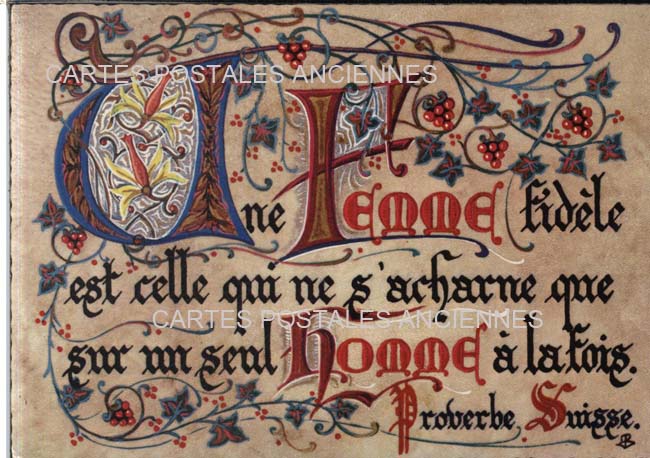 CARTES POSTALES ANCIENNES
Une Femme fidèle
est celle qui ne s'acharne que
CARTES POSTALES ANCIENNES
sur un seul Homme à la fois.
Proverbe Suisse.